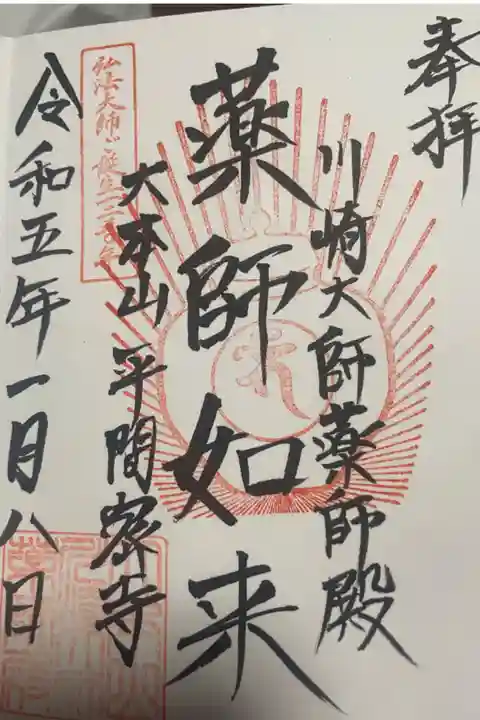 奉拝
川崎大師薬師殿
薬師如来
大本山 平間寺
弘法大師ご誕生一二五〇年
令和五年一月八日